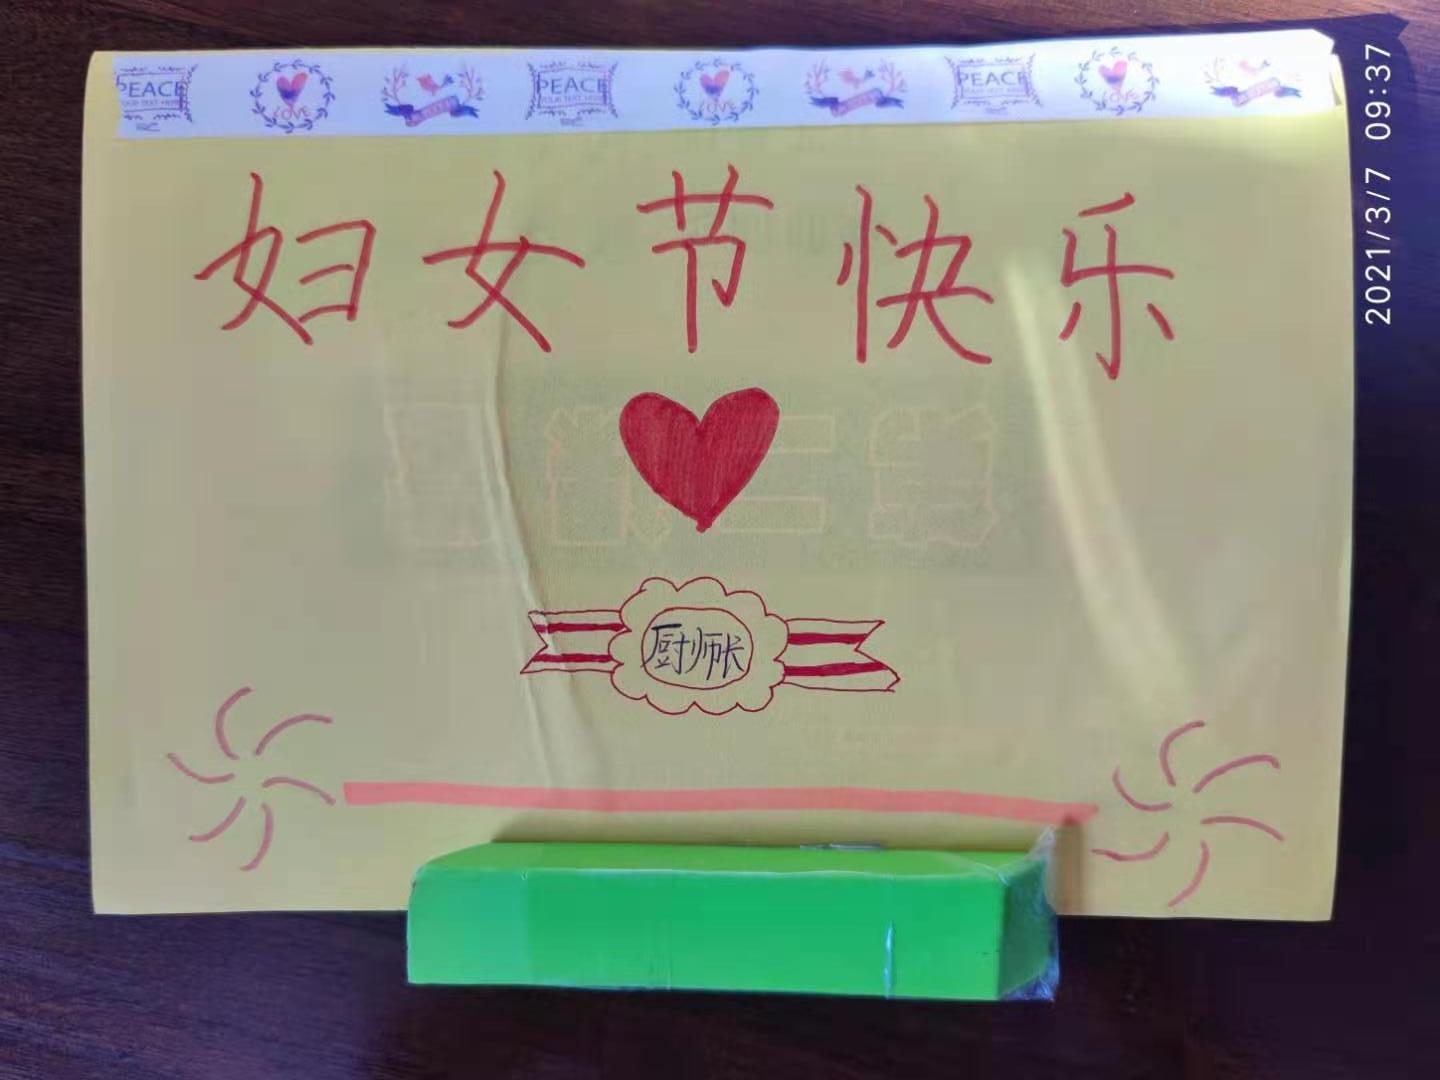 PEACE
YOUR TEXT HERE
LOVE
PEACE
YOUR TEXT HERE
LOVE
PEACE
YOUR TEXT HERE
LOVE
妇女节快乐
厨师长
2021/3/7 09:37